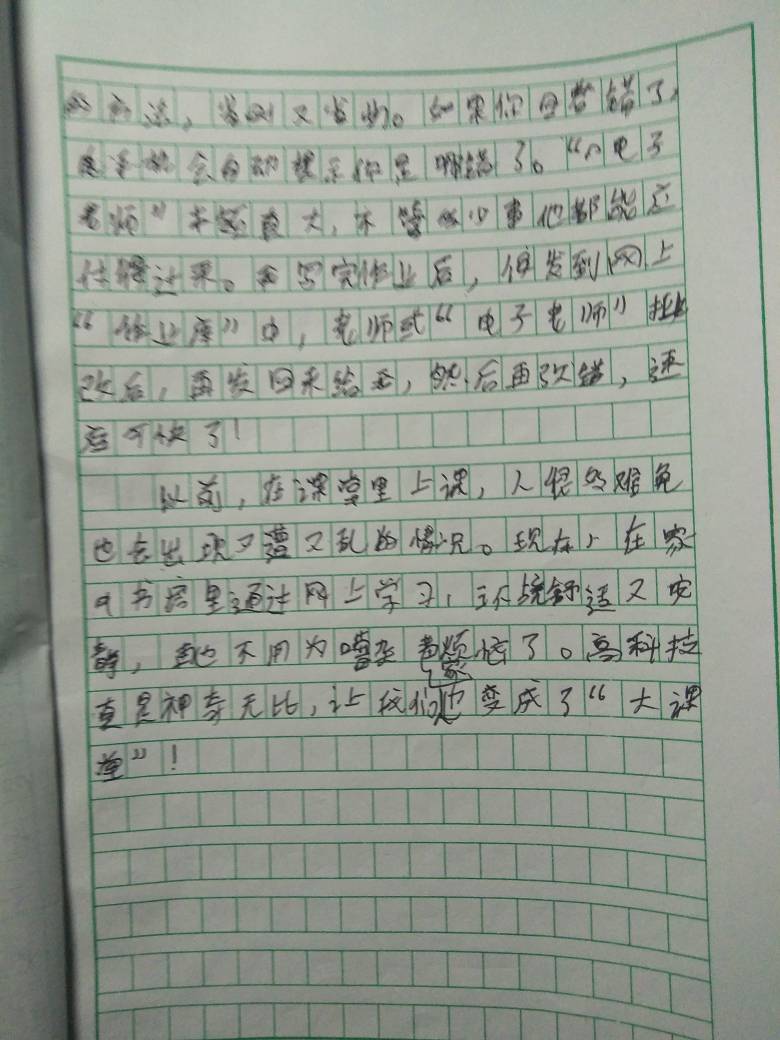 的方法，省时又省力。如果你回答错了，
会自动提示你是哪错了。“电子
老师”本领真大，不管什么事他都能应
付得过来。写完作业后，但发到网上
“作业库”中，老师或“电子老师”批
改后，再发回来给我，然后再改错，速
度可快了！
以前，在课堂里上课，人很多难免
也会出现又遭又乱的情况。现在，在家
的书房里通过网上学习，环境舒适又安
静，也不用为嘈杂着烦恼了。高科技
真是神奇无比，让我们家也变成了“大课
堂”！